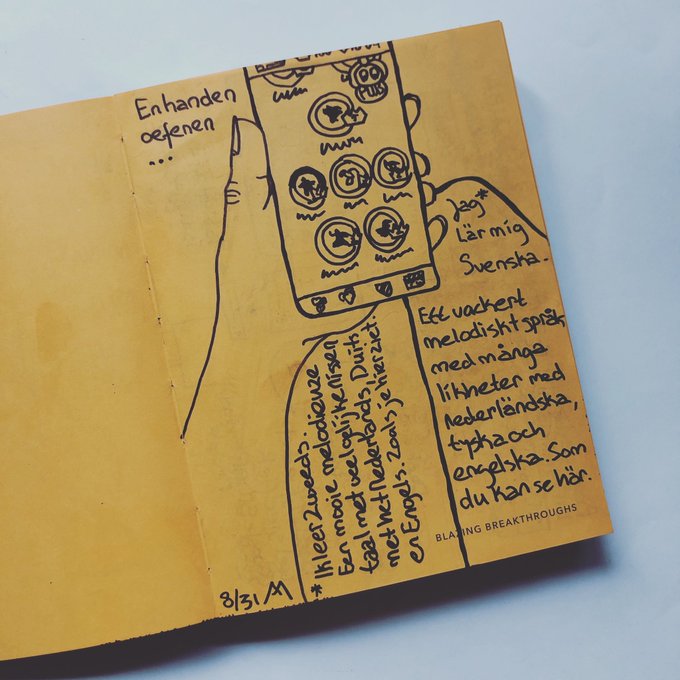 En handen
oefenen
...
Jag*
Lär mig
Svenska.
Ett vackert
melodiskt språk
med många
likheter med
nederländska,
tyska och
engelska. Som
du kan se här.
* Ik leer Zweeds.
Een mooie melodieuze
taal met veel gelijkenissen
met het Nederlands, Duits
en Engels. Zoals je hier ziet.
8/31
BLAZING BREAKTHROUGHS